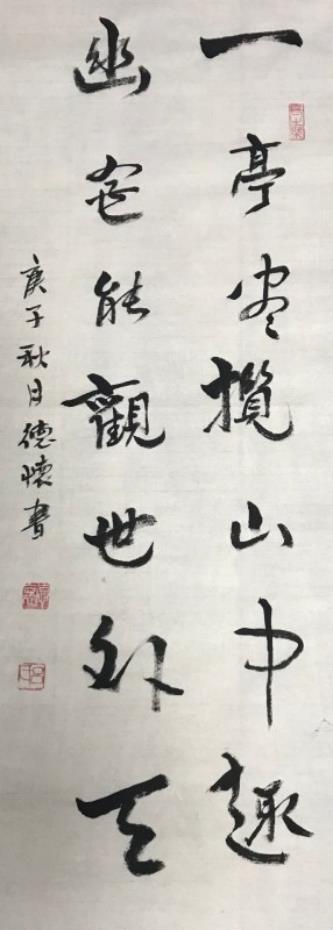 一亭尽揽山中趣
幽室能觀世外天
庚子秋月德懷書